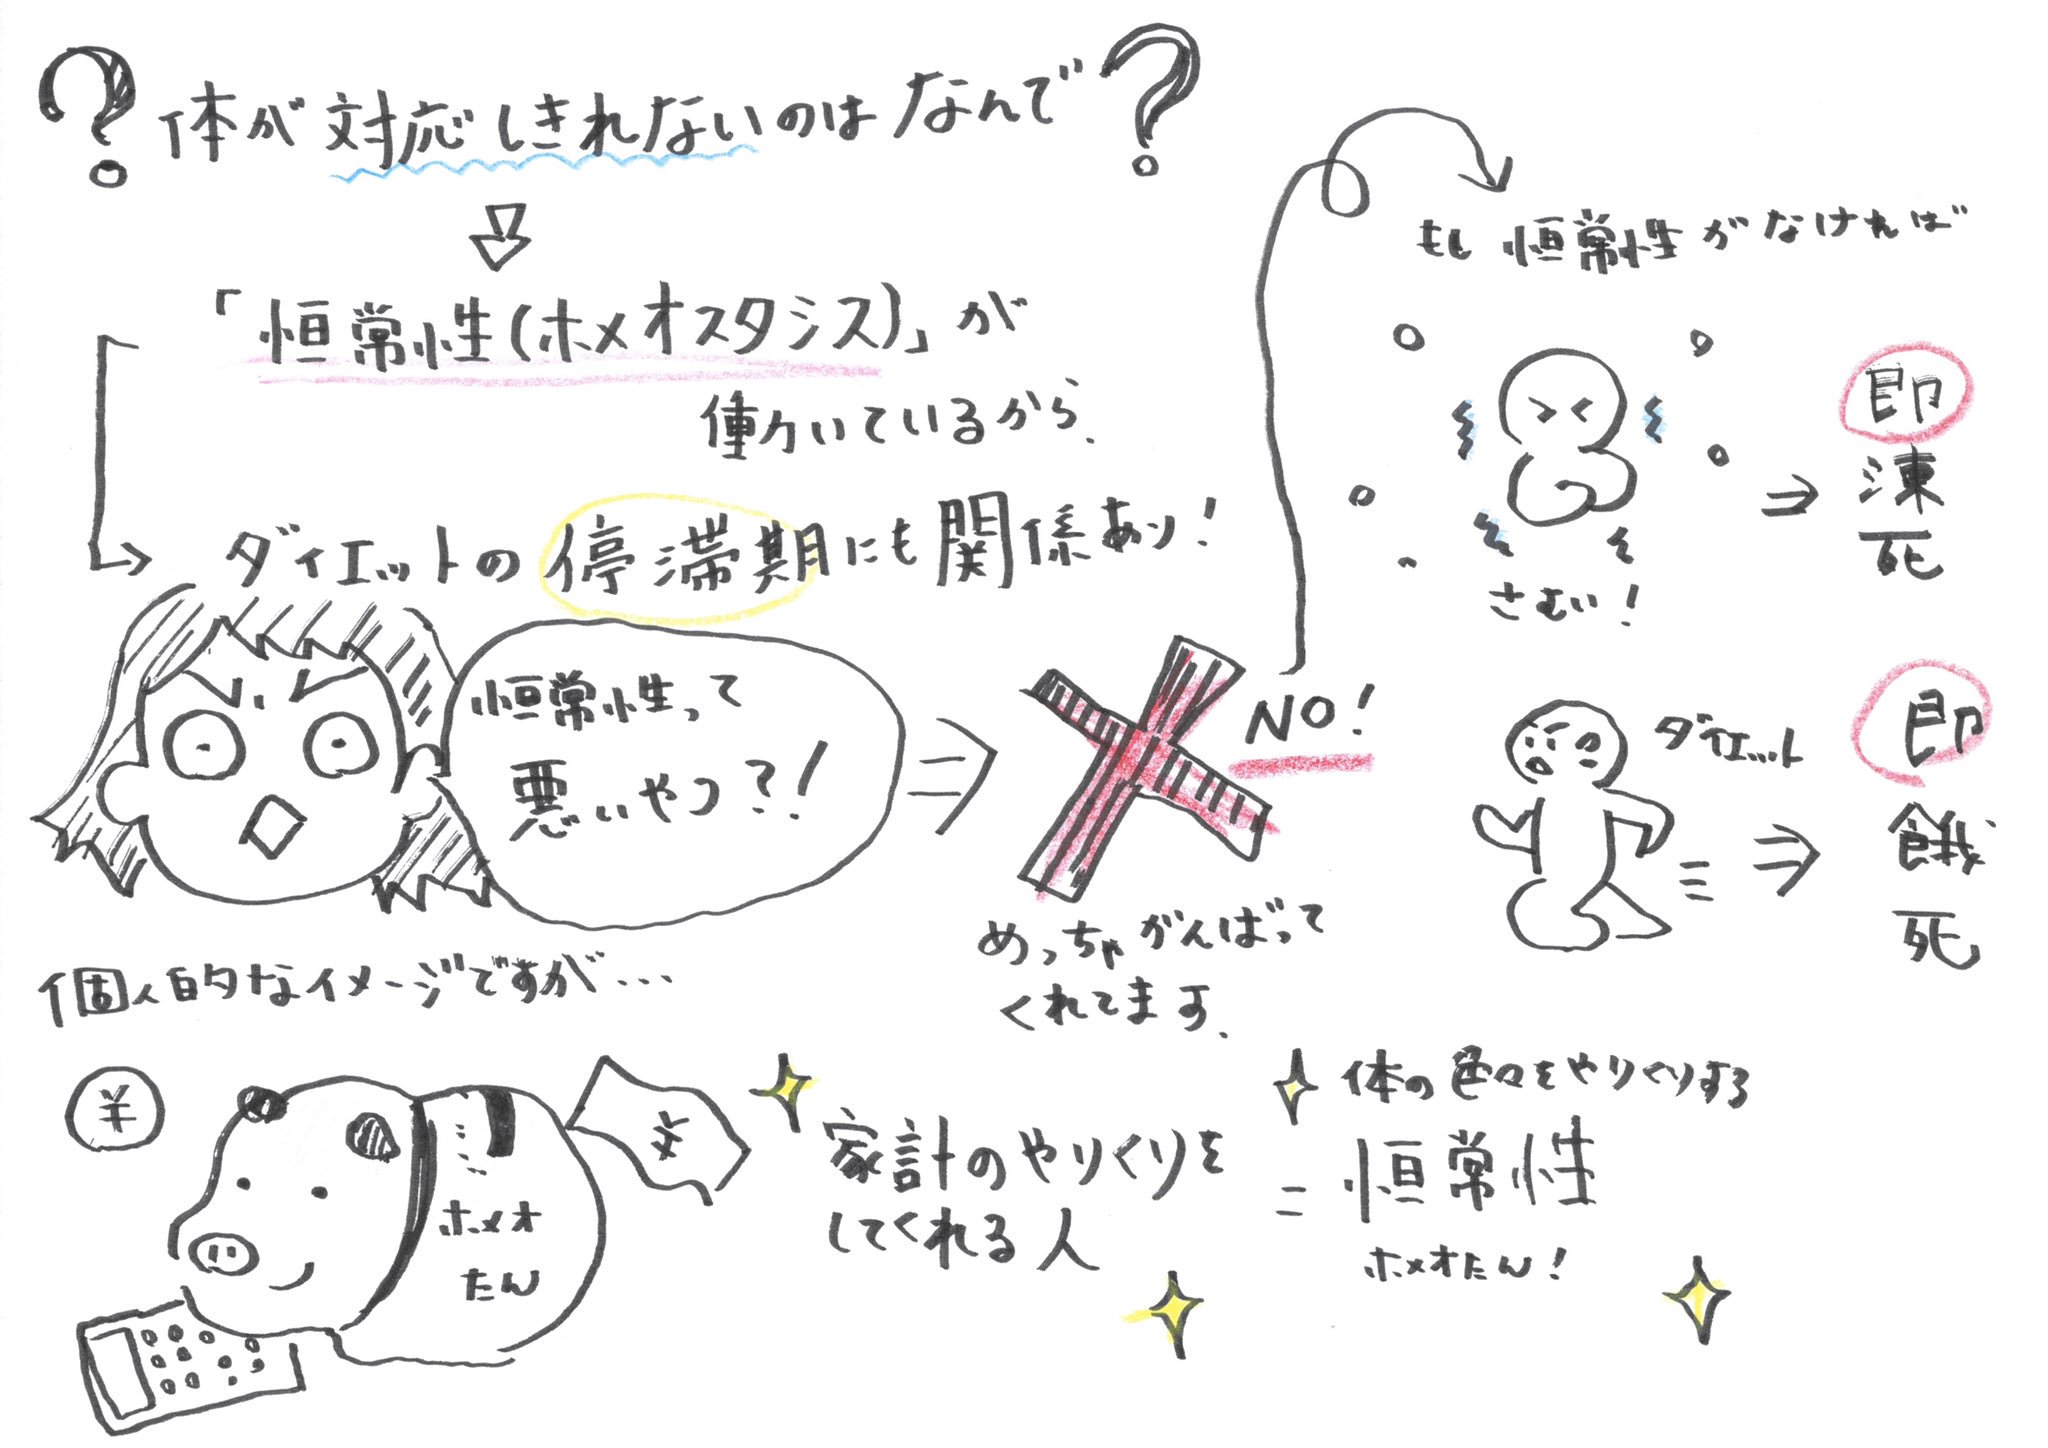 ? 体が対応しきれないのはなんで?
「恒常性(ホメオスタシス)」が
働いているから.
ダイエットの停滞期にも関係あり!
恒常性って
悪いやつ?!
NO!
めっちゃがんばって
くれてます.
もし恒常性がなければ
さむい!
即
凍
死
ダイエット
即
餓
死
個人的なイメージですが...
¥
¥
ホメオ
たん
家計のやりくりを
してくれる人
=
体の色々をやりくりする
恒常性
ホメオたん!